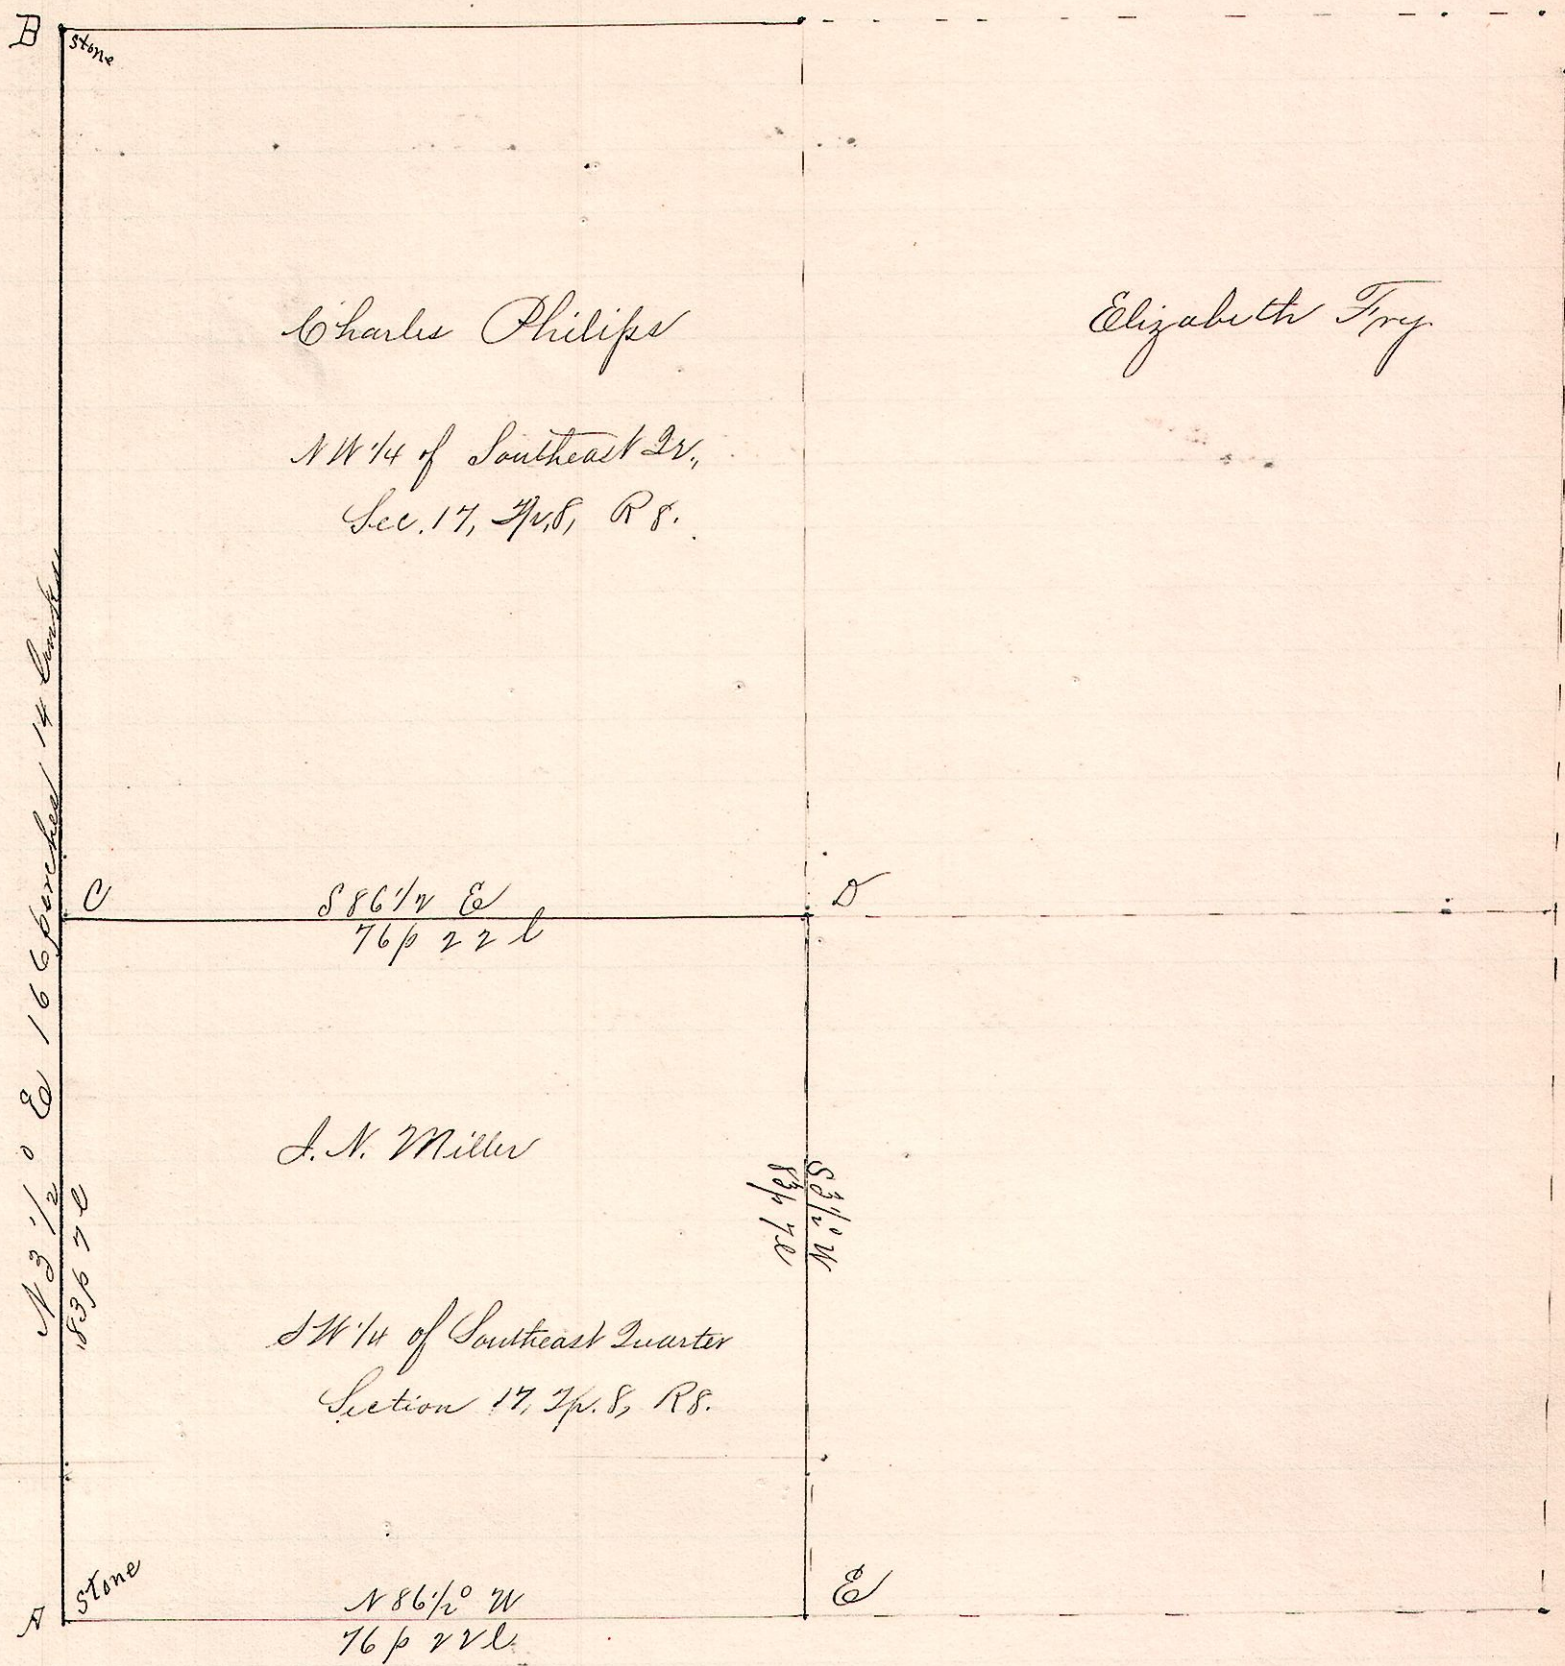 B
stone
Charles Philips
Elizabeth Fry.
NW 1/4 of Southeast Qr.,
Sec. 17, Tp. 8, R 8.
N 3 1/2° E 166 perches 14 links
C
S 86 1/2 E
D
76 p 22 l
J. N. Miller
83 p 7 l
S 3 1/2° W
83 p 7 l
SW 1/4 of Southeast Quarter
Section 17, Tp. 8, R 8.
stone
N 86 1/2° W
E
A
76 p 22 l